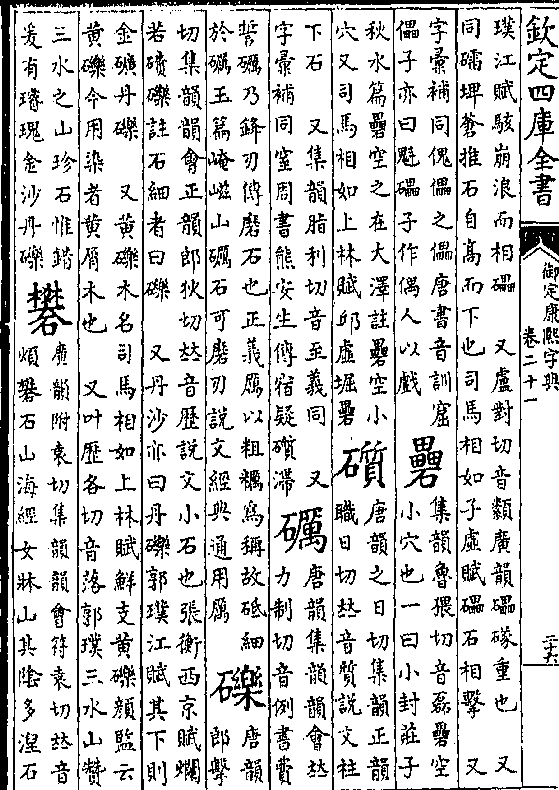 欽定四庫全書
御定康熙字典
卷二十一
璞江賦駭崩浪而相礧　又盧對切音纇廣韻礧硋重也　又
同礌埤蒼推石自高而下也司馬相如子虛賦礧石相擊　又
字彙補同傀儡之儡唐書音訓窟
儡子亦曰魁礧子作偶人以戲
礨
集韻魯猥切音磊礨空
小穴也一曰小封莊子
秋水篇礨空之在大澤註礨空小
穴又司馬相如上林賦邱虛堀礨
礩
唐韻之日切集韻正韻
職日切𠀤音質說文柱
下石　又集韻脂利切音至義同　又
字彙補同窒周書熊安生傳宿疑礩滯
礪
唐韻集韻韻會𠀤
力制切音例書費
誓礪乃鋒刃傳磨石也正義厲以粗糲爲稱故砥細
於礪玉篇崦嵫山礪石可磨刃說文經典通用厲
礫
唐韻
郎擊
切集韻韻會正韻郎狄切𠀤音歷說文小石也張衡西京賦爛
若磧礫註石細者曰礫　又丹沙亦曰丹礫郭璞江賦其下則
金礦丹礫　又黃礫木名司馬相如上林賦鮮支黃礫顏監云
黃礫今用染者黃屑木也　又叶歷各切音落郭璞三水山贊
三水之山珍石惟錯
爰有璿瑰金沙丹礫
礬
廣韻附袁切集韻韻會符袁切𠀤音
煩礬石山海經女牀山其陰多涅石